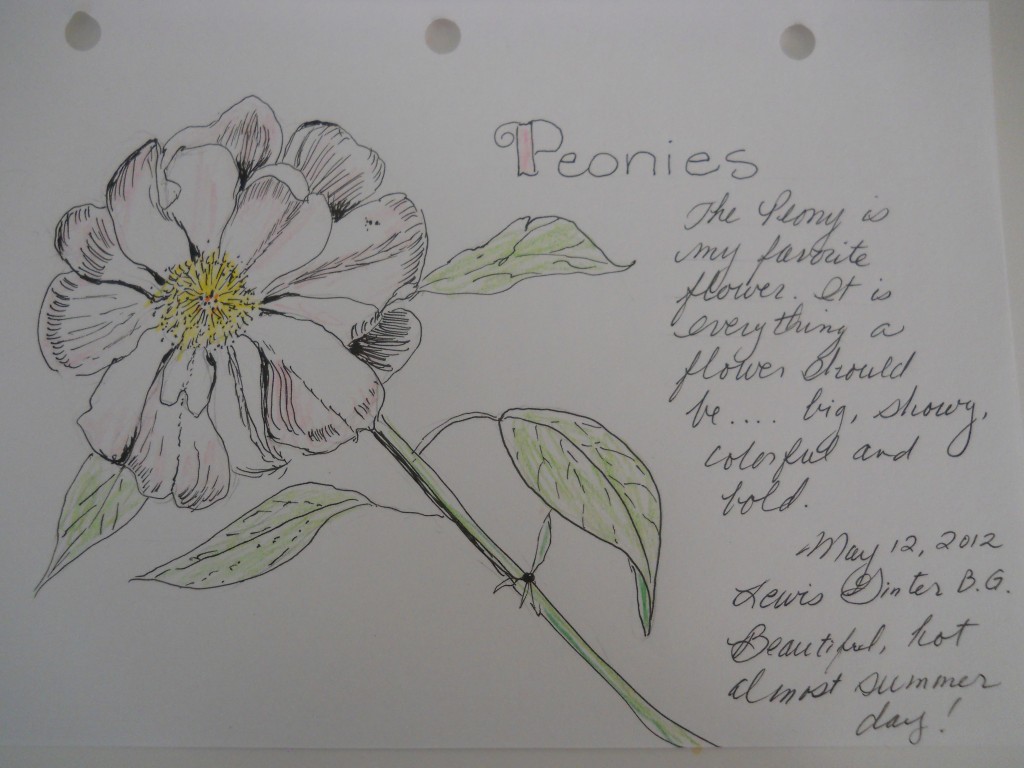 Peonies
The Peony is
my favorite
flower. It is
everything a
flower should
be.... big, showy,
colorful and
bold.
May 12, 2012
Lewis Ginter B.G.
Beautiful, hot
almost summer
day!